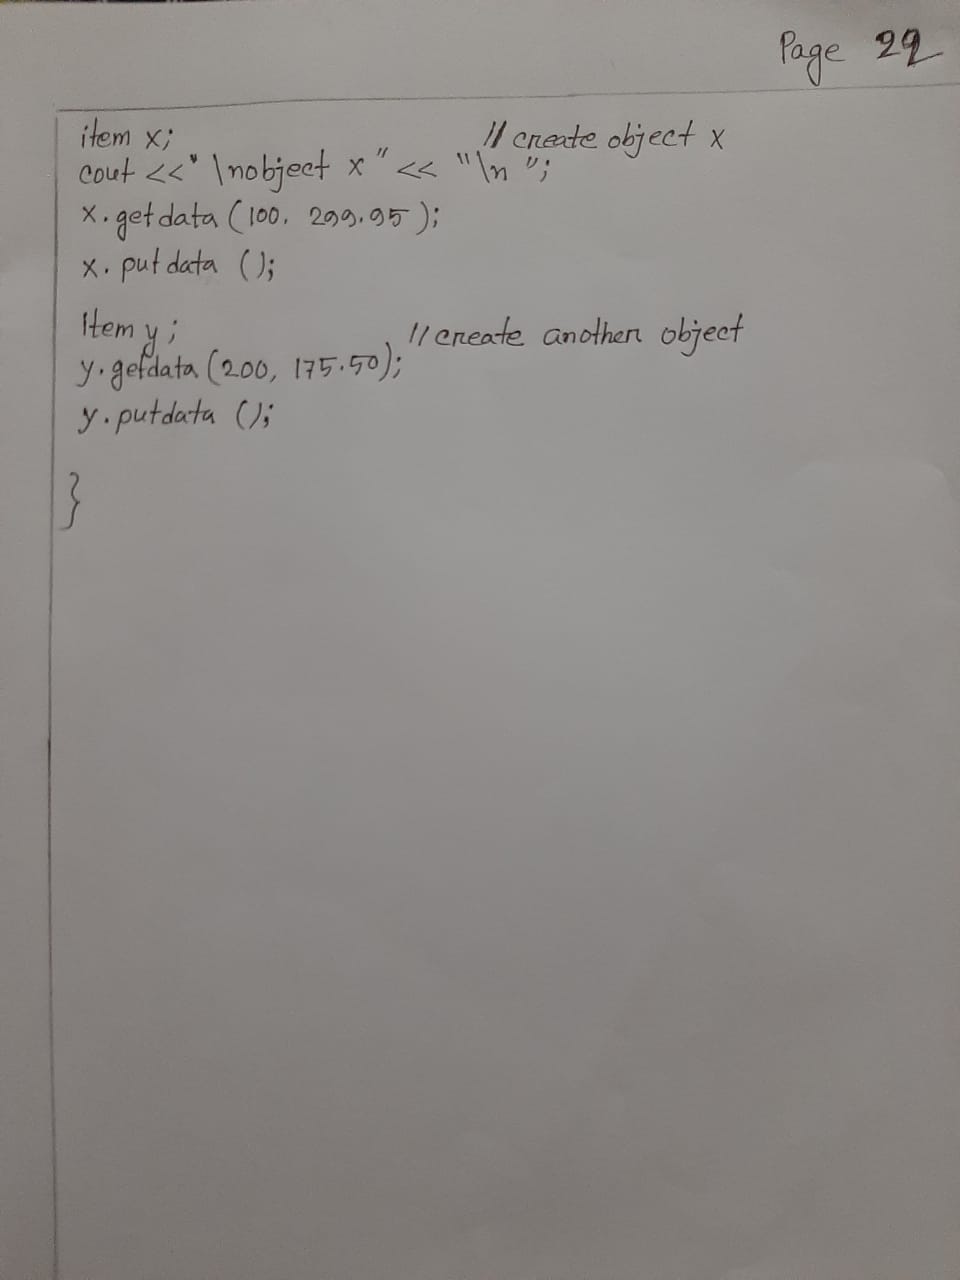 Page 22
item x; // create object x
cout <<" \nobject x" << "\n ";
x.getdata (100, 299.95);
x. putdata ();
Item y; // create another object
y.getdata (200, 175.50);
y.putdata ();
}